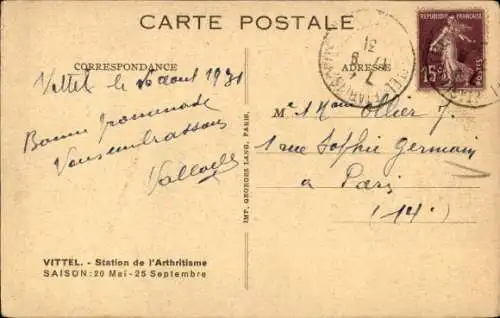 CARTE POSTALE
CORRESPONDANCE
ADRESSE
Vittel le 16 aout 1931
Bonne promenade
Vous embrassons
VITTEL. - Station de l'Arthritisme
SAISON: 20 Mai - 25 Septembre
IMP. GEORGES LANG, PARIS.
RÉPUBLIQUE FRANÇAISE
15c
POSTES
31
Ollier J.
1 rue Sophie Germain
a Paris
(14e)